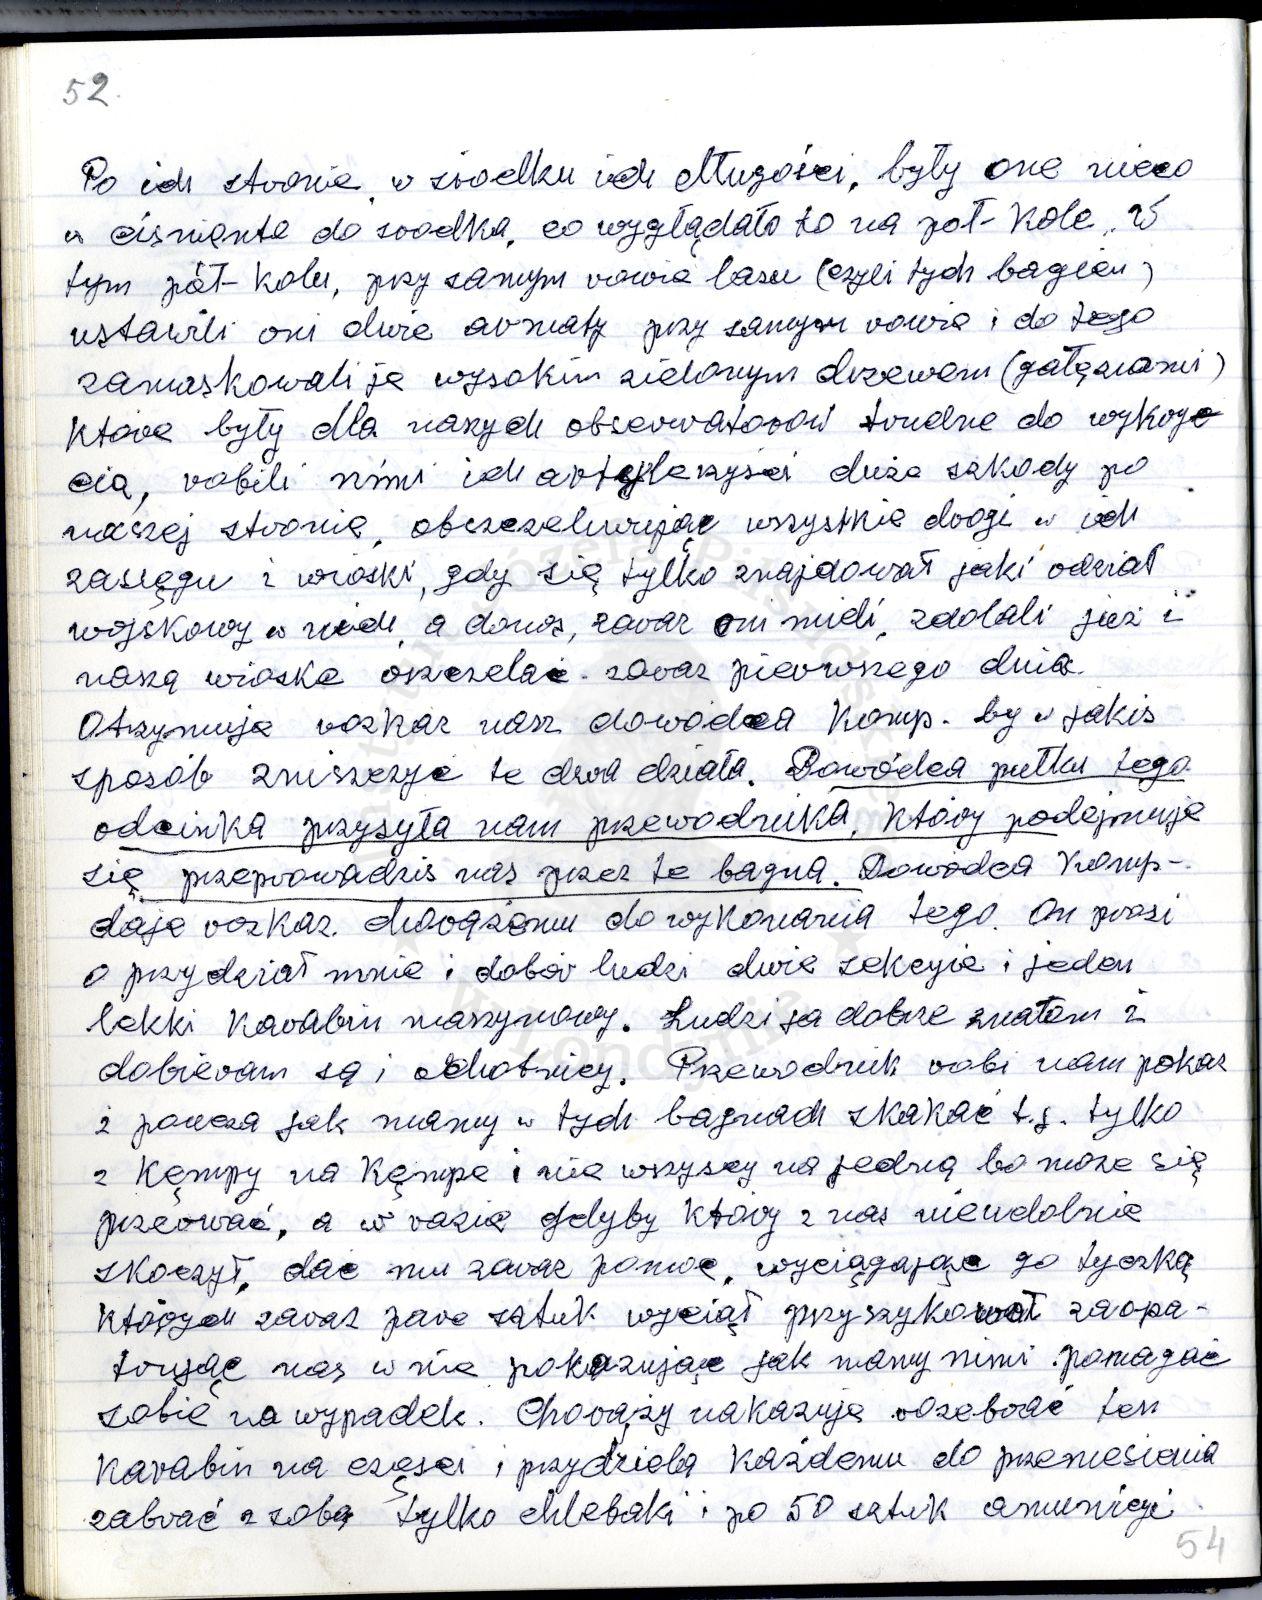 52.
Po ich stronie, w środku ich długości, były one nieco
w ciśnięnte do środka, co wyglądało to na pół-kole. W
tym pół-kolu, przy samym rowie lasu (czyli tych bagien)
ustawili oni dwie armaty przy samym rowie i do tego
zamaskowali je wysokim zielonym drzewem (gałęziami)
które były dla naszych obserwatorów trudne do wykryc
cia, robili nimi ich artylerzyści duże szkody po
naszej stronie, obszczeliwując wszystkie drogi w ich
zasięgu i wioski, gdy się tylko znajdował jaki odział
wojskowy w nich, a donos, zaraz oni mieli, zdołali już i
naszą wioskę oszczelać zaraz pierwszego dnia.
Otrzymuje rozkaz nasz dowódca Komp. by w jakiś
sposób zniszczyć te dwa działa. Dowódca pułku tego
odcinka przysyła nam przewodnika, który podejmuje
się przeprowadzis nas przez te bagna. Dowódca Komp-
daje rozkaz chorążemu do wykonania tego. On prosi
o przydział mnie i dobór ludzi dwie sekcyie i jeden
lekki karabin maszynowy. Ludzi ja dobrze znałem i
dobieram są i ochotnicy. Przewodnik robi nam pokaz
i poucza jak mamy w tych bagnach skakać t.j. tylko
z Kęmpy na Kęmpe i nie wszyscy na jedną bo może się
przerwać, a w razie gdyby który z nas nieudolnie
skoczył, dać mu zaraz pomoc, wyciągając go tyczką
których zaraz pare sztuk wyciął przyszykował zaopa-
trując nas w nie pokazując jak mamy nimi pomagać
sobie na wypadek. Chorąży nakazuje rozebrać ten
karabin na części i przydziela każdemu do przeniesienia
zabrać z sobą tylko chlebaki i po 50 sztuk amunicyi
54
Instytut Józefa Piłsudskiego
w Londynie